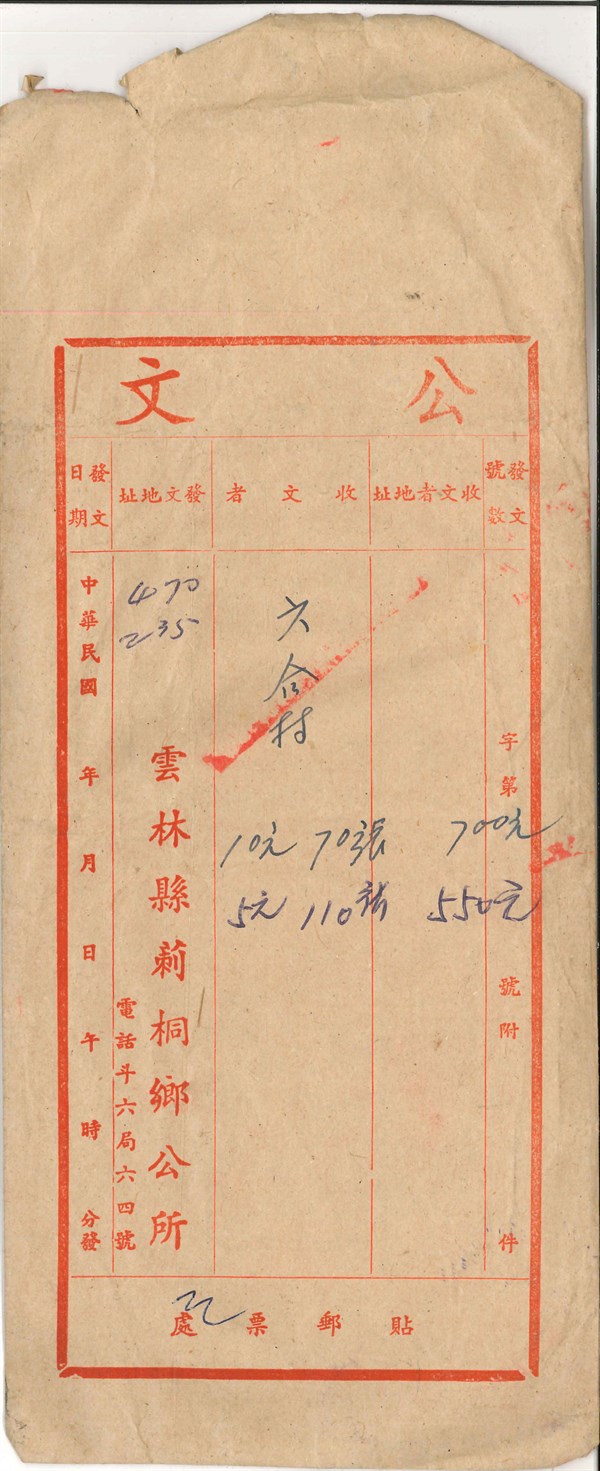 公文
發文號數
收文者地址
收文者
發文地址
發文日期
字第 號附 件
六合村
10元 70張 700元
5元 110張 550元
470
235
雲林縣莿桐鄉公所
電話斗六局六四號
中華民國 年 月 日 午 時 分發
貼郵票處